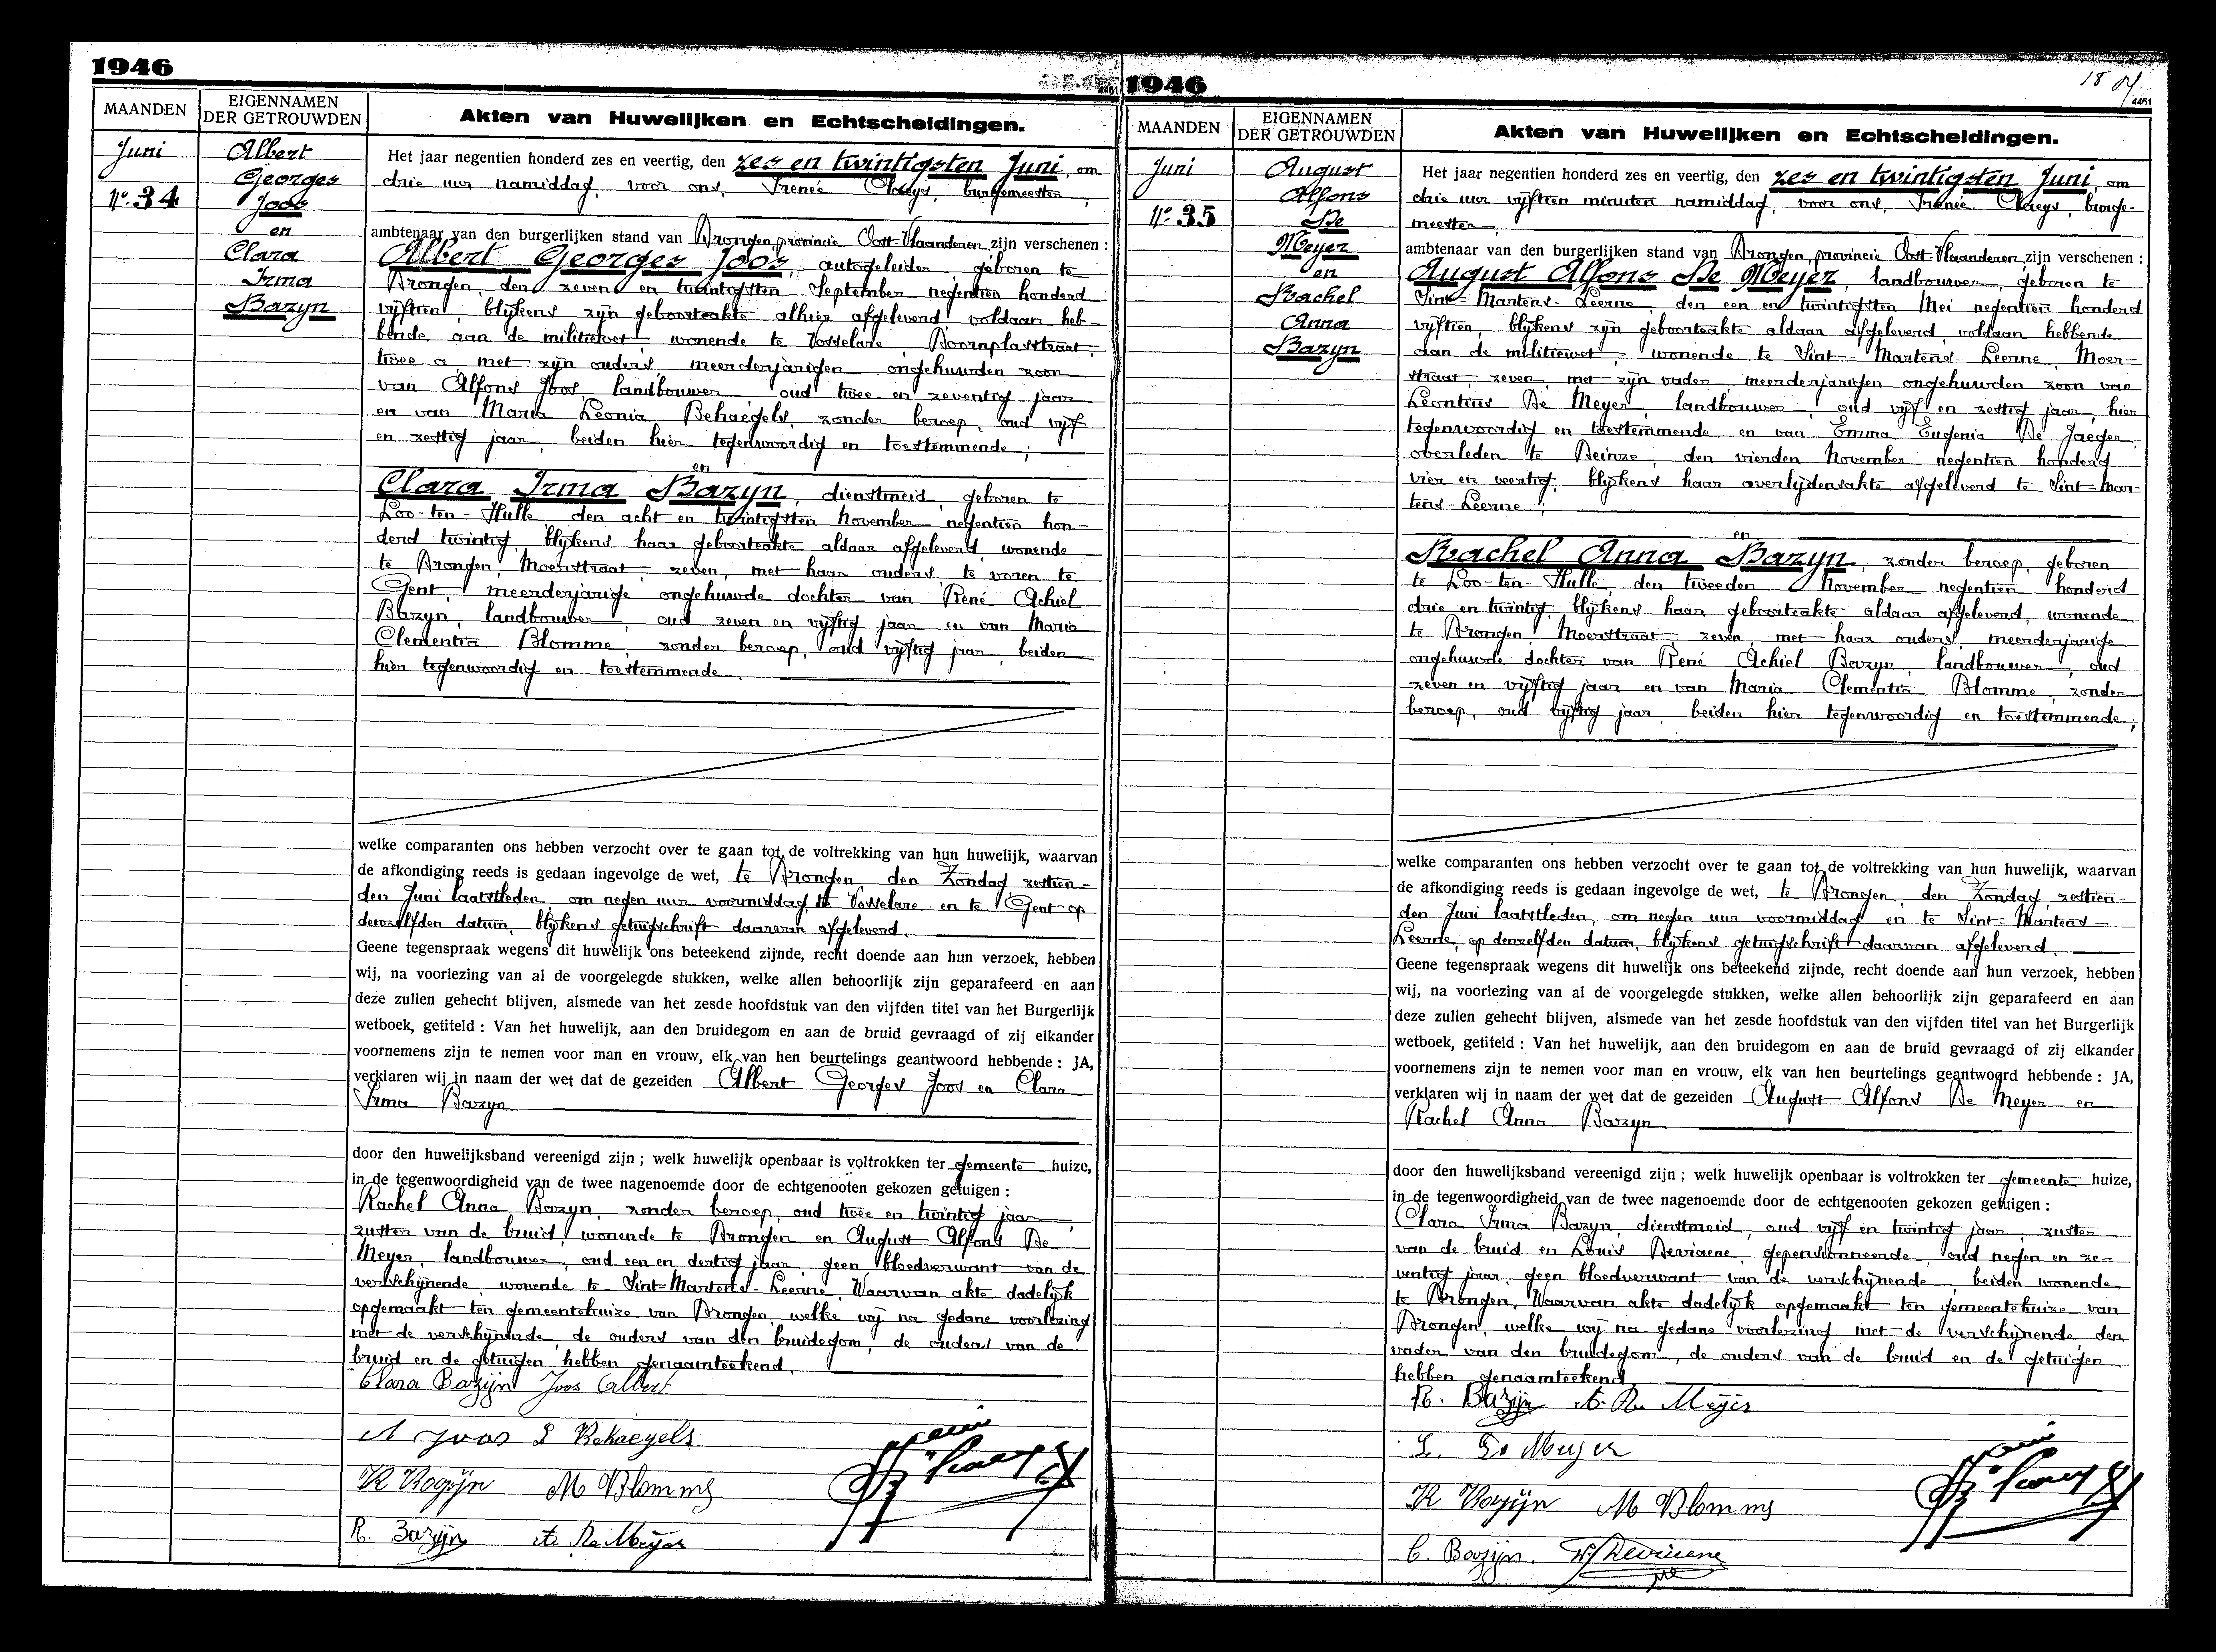 1946
MAANDEN
EIGENNAMEN
DER GETROUWDEN
Akten van Huwelijken en Echtscheidingen.
Juni
Nr. 34
Albert
Georges
Joos
en
Clara
Irma
Bazyn
Het jaar negentien honderd zes en veertig, den zes en twintigsten Juni, om
drie uur namiddag, voor ons, Irenée Claeys, burgemeester,
ambtenaar van den burgerlijken stand van Drongen, provincie Oost-Vlaanderen, zijn verschenen :
Albert Georges Joos, autogeleider, geboren te
Drongen, den zeven en twintigsten September negentien honderd
vijftien, blijkens zijn geboorteakte alhier afgeleverd, voldaan heb-
bende aan de militiewet, wonende te Vosselare, Doornplasstraat,
twee a, met zijn ouders, meerderjarigen ongehuwden zoon
van Alfons Joos, landbouwer, oud twee en zeventig jaar
en van Maria Leonia Behaegels, zonder beroep, oud vijf
en zestig jaar, beiden hier tegenwoordig en toestemmende ;
en
Clara Irma Bazyn, dienstmeid, geboren te
Loo-ten-Hulle, den acht en twintigsten November negentien hon-
derd twintig, blijkens haar geboorteakte aldaar afgeleverd, wonende
te Drongen, Moerstraat, zeven, met haar ouders, te voren te
Gent, meerderjarige ongehuwde dochter van René Achiel
Bazyn, landbouwer, oud zeven en vijftig jaar en van Maria
Clementia Blomme, zonder beroep, oud vijftig jaar, beiden
hier tegenwoordig en toestemmende.
welke comparanten ons hebben verzocht over te gaan tot de voltrekking van hun huwelijk, waarvan
de afkondiging reeds is gedaan ingevolge de wet, te Drongen, den Zondag, zestien-
den Juni laatstleden, om negen uur voormiddag, te Vosselare en te Gent op
denzelfden datum, blijkens getuigschrift daarvan afgeleverd.
Geene tegenspraak wegens dit huwelijk ons beteekend zijnde, recht doende aan hun verzoek, hebben
wij, na voorlezing van al de voorgelegde stukken, welke allen behoorlijk zijn geparafeerd en aan
deze zullen gehecht blijven, alsmede van het zesde hoofdstuk van den vijfden titel van het Burgerlijk
wetboek, getiteld : Van het huwelijk, aan den bruidegom en aan de bruid gevraagd of zij elkander
voornemens zijn te nemen voor man en vrouw, elk van hen beurtelings geantwoord hebbende : JA,
verklaren wij in naam der wet dat de gezeiden Albert Georges Joos en Clara
Irma Bazyn
door den huwelijksband vereenigd zijn ; welk huwelijk openbaar is voltrokken ter gemeente huize,
in de tegenwoordigheid van de twee nagenoemde door de echtgenooten gekozen getuigen :
Rachel Anna Bazyn, zonder beroep, oud twee en twintig jaar,
zuster van de bruid, wonende te Drongen en August Alfons De
Meyer, landbouwer, oud een en dertig jaar, geen bloedverwant van de
verschijnende, wonende te Sint-Martens-Leerne. Waarvan akte dadelijk
opgemaakt ten gemeentehuize van Drongen, welke wij na gedane voorlezing
met de verschijnende, de ouders van den bruidegom, de ouders van de
bruid en de getuigen hebben genaamteekend.
Clara Bazijn Joos Albert
A Joos L Behaegels
R Bazijn M Blomme
R. Bazijn A. De Meyer
1946
18
4461
MAANDEN
EIGENNAMEN
DER GETROUWDEN
Akten van Huwelijken en Echtscheidingen.
Juni
Nr. 35
August
Alfons
De
Meyer
en
Rachel
Anna
Bazyn
Het jaar negentien honderd zes en veertig, den zes en twintigsten Juni, om
drie uur vijftien minuten namiddag, voor ons, Irenée Claeys, burge-
meester,
ambtenaar van den burgerlijken stand van Drongen, provincie Oost-Vlaanderen, zijn verschenen :
August Alfons De Meyer, landbouwer, geboren te
Sint-Martens-Leerne, den een en twintigsten Mei negentien honderd
vijftien, blijkens zijn geboorteakte aldaar afgeleverd, voldaan hebbende
aan de militiewet, wonende te Sint-Martens-Leerne, Moer-
straat, zeven, met zijn vader, meerderjarigen ongehuwden zoon van
Leontius De Meyer, landbouwer, oud vijf en zestig jaar, hier
tegenwoordig en toestemmende en van Emma Eugenia De Jaeger,
overleden te Deinze, den vierden November negentien honderd
vier en veertig, blijkens haar overlijdensakte afgeleverd te Sint-Mar-
tens-Leerne ;
en
Rachel Anna Bazyn, zonder beroep, geboren
te Loo-ten-Hulle, den tweeden November negentien honderd
drie en twintig, blijkens haar geboorteakte aldaar afgeleverd, wonende
te Drongen, Moerstraat, zeven, met haar ouders, meerderjarige
ongehuwde dochter van René Achiel Bazyn, landbouwer, oud
zeven en vijftig jaar en van Maria Clementia Blomme, zonder
beroep, oud vijftig jaar, beiden hier tegenwoordig en toestemmende,
welke comparanten ons hebben verzocht over te gaan tot de voltrekking van hun huwelijk, waarvan
de afkondiging reeds is gedaan ingevolge de wet, te Drongen, den Zondag, zestien-
den Juni laatstleden, om negen uur voormiddag en te Sint-Martens-
Leerne, op denzelfden datum, blijkens getuigschrift daarvan afgeleverd.
Geene tegenspraak wegens dit huwelijk ons beteekend zijnde, recht doende aan hun verzoek, hebben
wij, na voorlezing van al de voorgelegde stukken, welke allen behoorlijk zijn geparafeerd en aan
deze zullen gehecht blijven, alsmede van het zesde hoofdstuk van den vijfden titel van het Burgerlijk
wetboek, getiteld : Van het huwelijk, aan den bruidegom en aan de bruid gevraagd of zij elkander
voornemens zijn te nemen voor man en vrouw, elk van hen beurtelings geantwoord hebbende : JA,
verklaren wij in naam der wet dat de gezeiden August Alfons De Meyer en
Rachel Anna Bazyn
door den huwelijksband vereenigd zijn ; welk huwelijk openbaar is voltrokken ter gemeente huize,
in de tegenwoordigheid van de twee nagenoemde door de echtgenooten gekozen getuigen :
Clara Irma Bazyn, dienstmeid, oud vijf en twintig jaar, zuster
van de bruid en Louis Deviaene, gepensionneerde, oud negen en ze-
ventig jaar, geen bloedverwant van de verschijnende, beiden wonende
te Drongen. Waarvan akte dadelijk opgemaakt ten gemeentehuize van
Drongen, welke wij na gedane voorlezing met de verschijnende, den
vader van den bruidegom, de ouders van de bruid en de getuigen
hebben genaamteekend.
R. Bazijn A. De Meyer
L. De Meyer
R Bazijn M Blomme
C. Bazijn. Deviaene